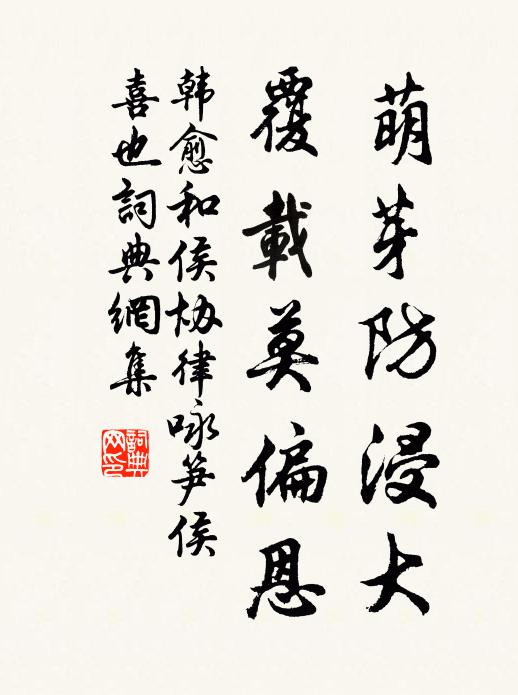 萌芽防浸大
覆載莫偏恩
韩愈和侯协律咏笋侯
喜也詞典網集
詞典
网印